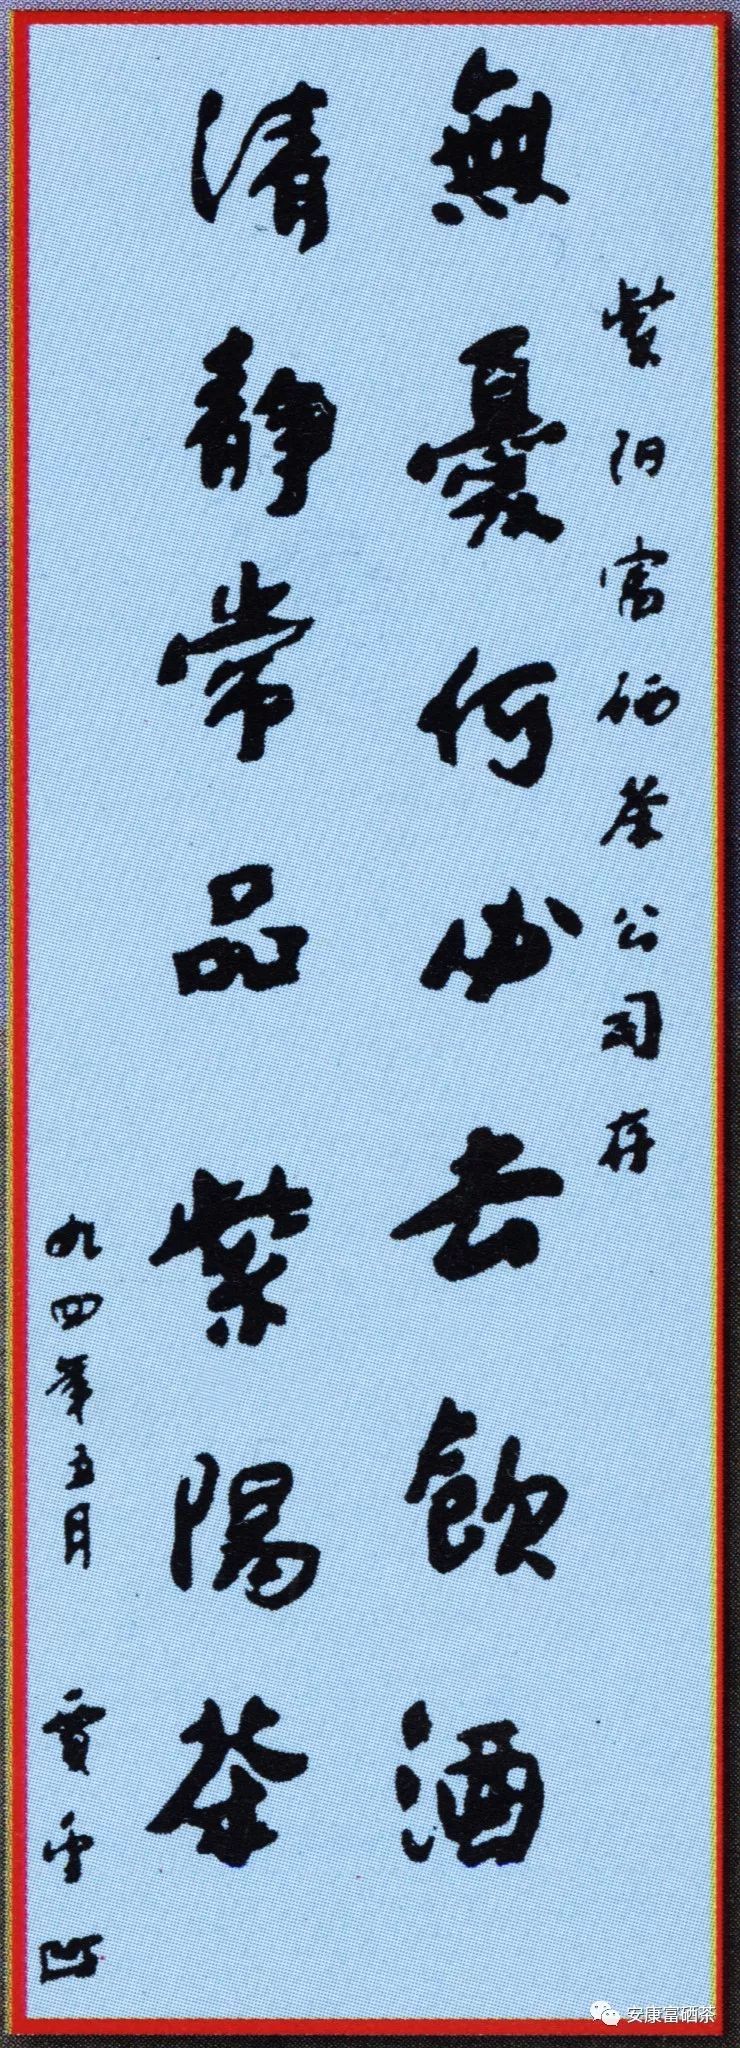 紫阳富硒茶公司存
無憂何必去飲酒
清靜常品紫陽茶
九四年五月 賈平凹
安康富硒茶